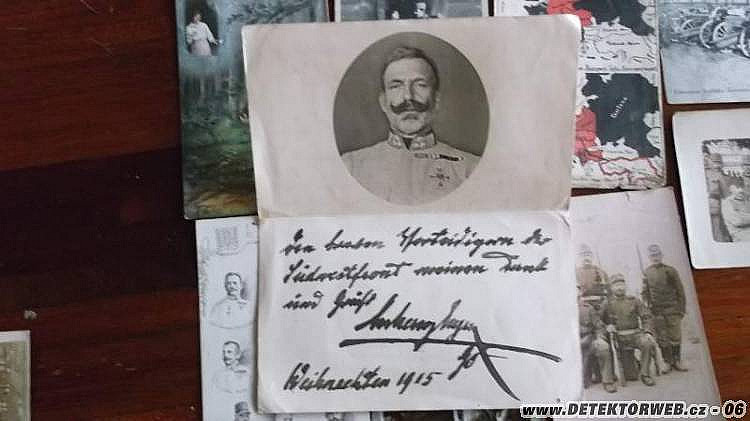 Den braven Verteidigern der
Südwestfront meinen Dank
und Gruß
Erzherzog Eugen
Weihnachten 1915
www.DETEKTORWEB.cz - 06